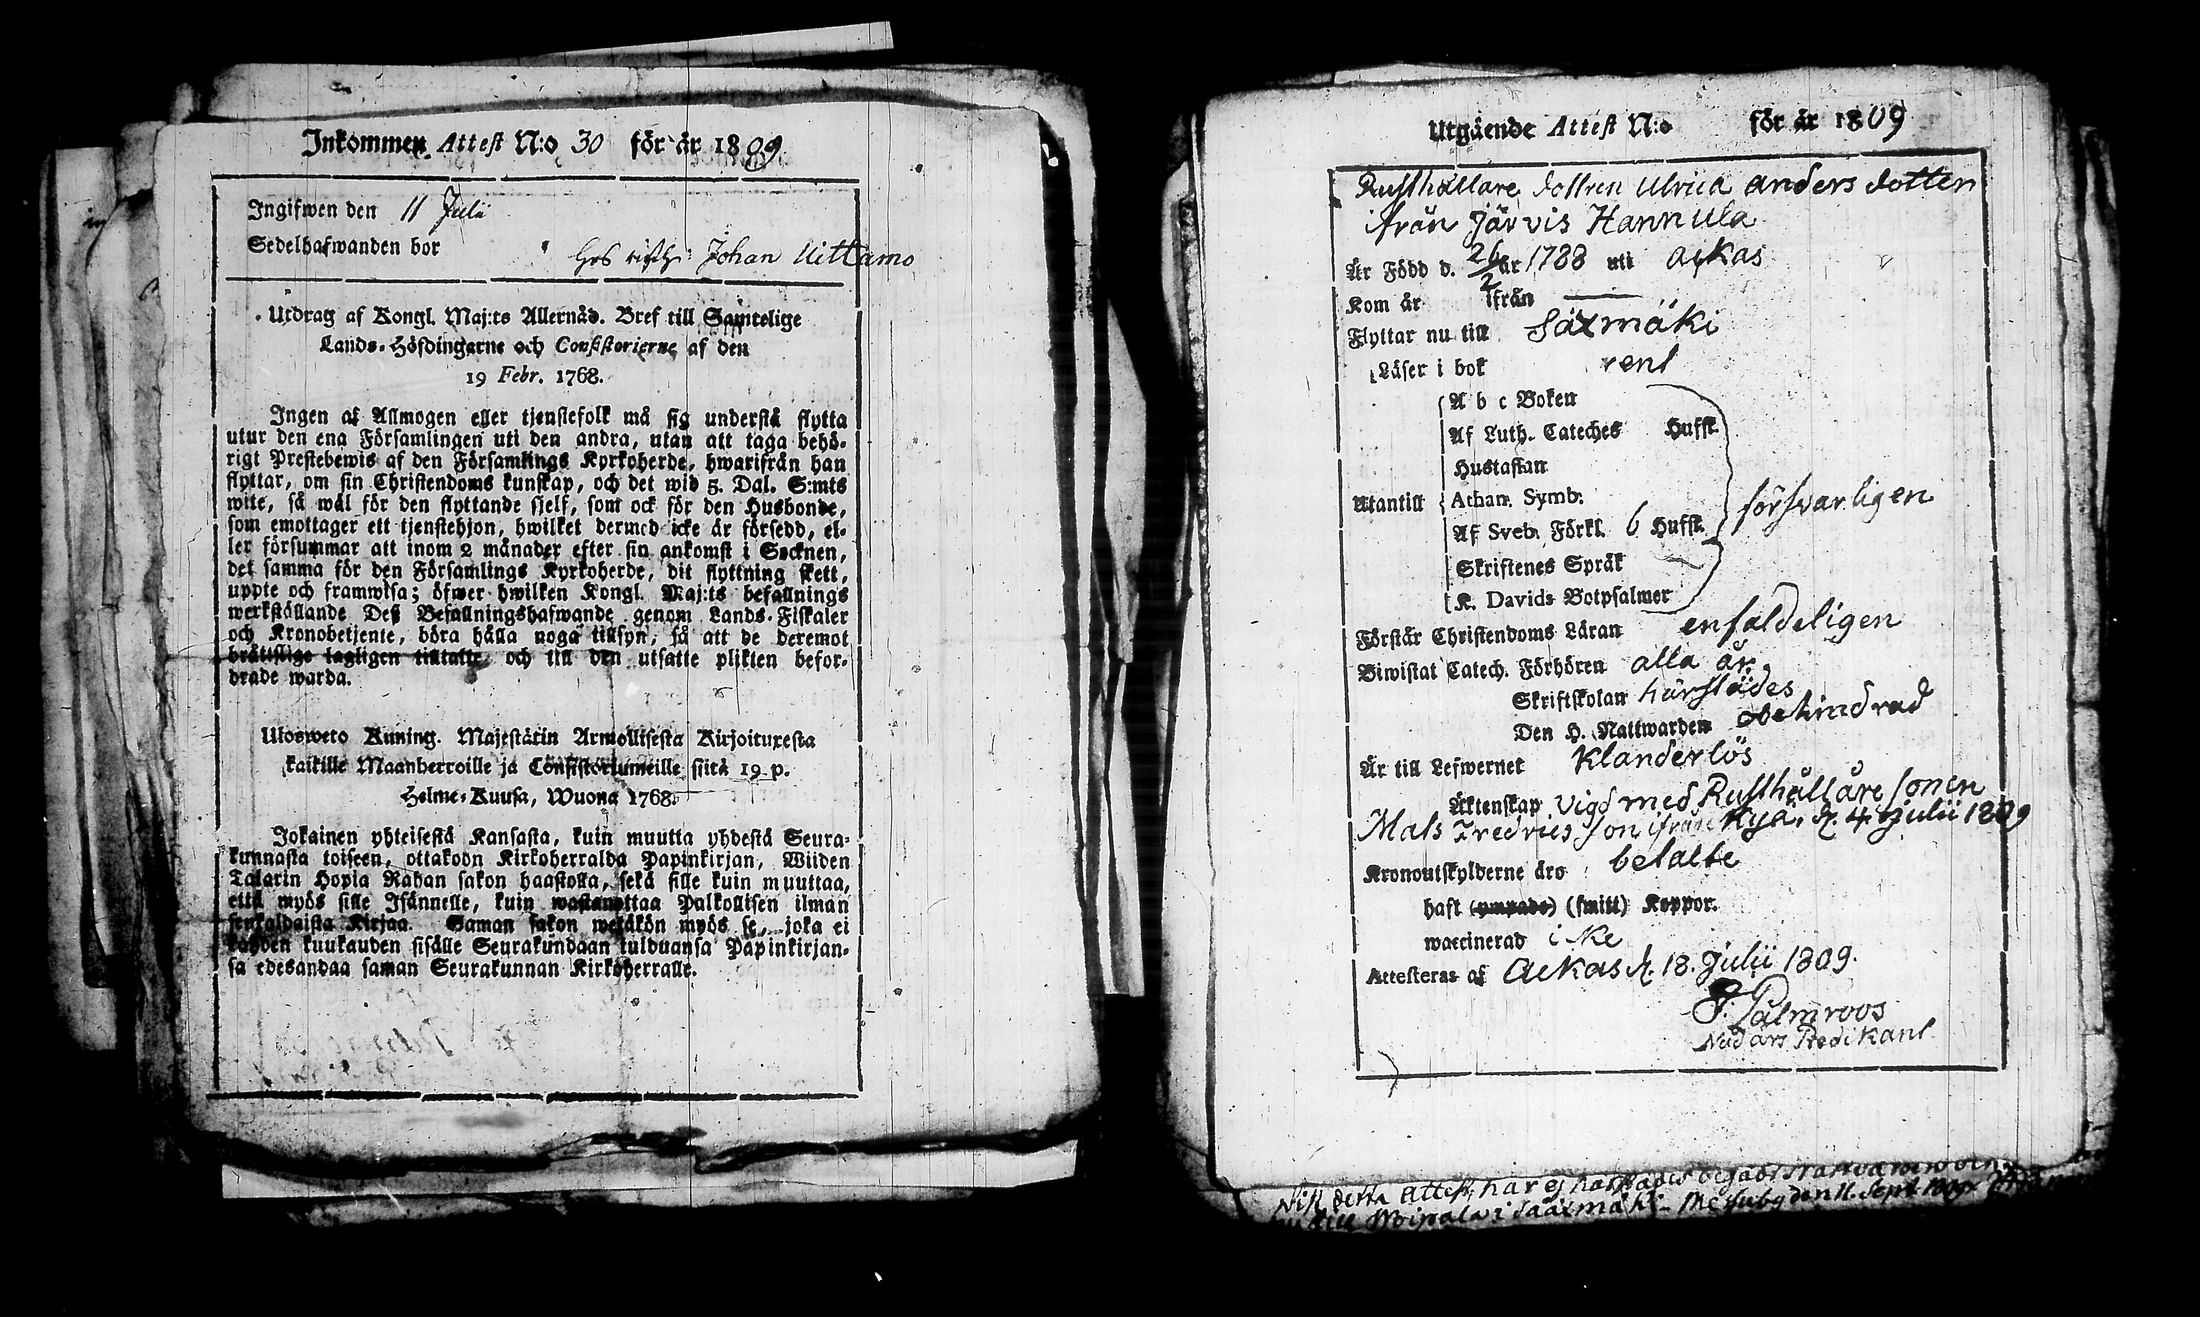 Inkommen Attest N:o 30 för år 1809
Ingifwen den 11 Julii
Sedelhafwanden bor
Johan Uittamo
Utdrag af Kongl. Maj:ts Allernåd. Bref till Samtelige
Lands-Höfdingarne och Consistorierne af den
19 Febr. 1768.
Ingen af Allmogen eller tjenstefolk må sig understå flytta
utur den ena Församlingen uti den andra, utan att taga behö-
rigt Prestebewis af den Församlings Kyrkoherde, hwarifrån han
flyttar, om sin Christendoms kunskap, och det wid 5. Dal. S:mts
wite, så wäl för den flyttande sjelf, som ock för den Husbonde,
som emottager ett tjenstehjon, hwilket dermed icke är försedd, el-
ler försummar att inom 2 månader efter sin ankomst i Socknen,
det samma för den Församlings Kyrkoherde, dit flyttning skett,
uppte och framwisa; öfwer hwilken Kongl. Maj:ts befallnings
werkställande Deß Befallningshafwande genom Lands-Fiskaler
och Kronobetjente, böra hålla noga tillsyn, så att de deremot
bråttslige lagligen tilltalte och till den utsatte plikten befor-
drade warda.
Ulosweto Kuning. Majestätin Armollisesta Kirjoituxesta
kaikille Maanherroille ja Consistoriumeille siitä 19 p.
Helme-Kuusa, Wuona 1768.
Jokainen yhteisestä Kansasta, kuin muutta yhdestä Seura-
kunnasta toiseen, ottakoon Kirkoherralda Papinkirjan, Wiiden
Talarin Hopia Rahan sakon haastolla, sekä sille kuin muuttaa,
että myös sille Isännelle, kuin wastanottaa Palkollisen ilman
senkaldaista Kirjaa. Saman sakon wetäkön myös se, joka ei
kahden kuukauden sisälle Seurakundaan tulduansa Papinkirjan-
sa edesandaa saman Seurakunnan Kirkoherralle.
Utgående Attest N:o för år 1809
Rusthållare dottren Ulrica anders dotter
ifrån Järvis Hannula
Är Född d. 26/2 år 1788 uti Ackas
Kom år ifrån
Flyttar nu till Säxmäki
Läser i bok rent
A b c Boken
Af Luth. Cateches Hufst.
Hustaflan
Utantill Athan. Symb. försvarligen
Af Sveb. Förkl. 6 Hufst.
Skriftenes Språk
K. Davids Botpsalmer
Förstår Christendoms Läran enfaldeligen
Biwistat Catech. Förhören alla år
Skriftskolan härstädes
Den H. Nattwarden obehindrad
Är till Lefwernet Klanderlös
Äktenskap vigd med Rusthållare sonen
Mats Fredrics son ifrån Kyä, d. 4 Julii 1809
Kronoutskylderne äro betalte
haft (ympade) (smitt) Koppor.
waccinerad icke
Attesteras af Ackas d. 18. Julii 1809.
J. Palmroos
Nådårs Predikant
detta attest, har ej
till Woipala i Sääxmäki den 11. Sept. 1809